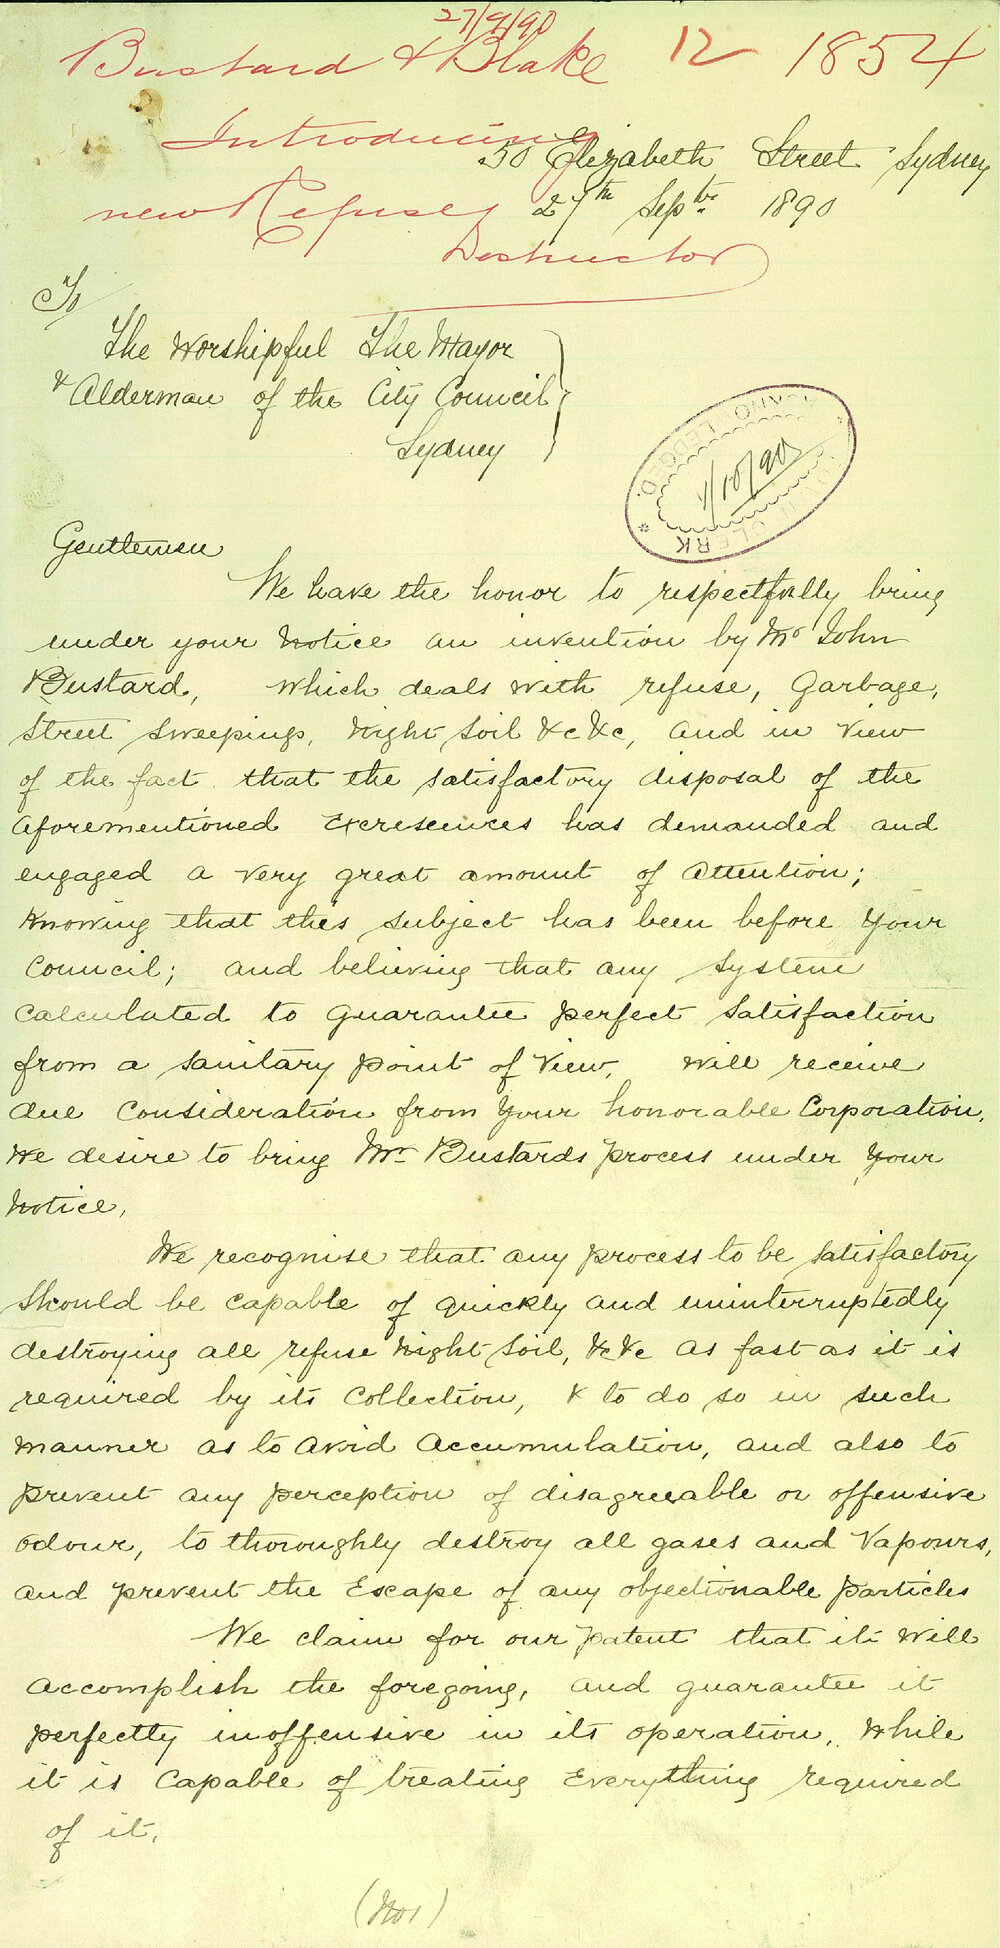 27/9/90
Bustard & Blake 12 1854
Introducing
50 Elizabeth Street Sydney
new Refuse
27th Septbr. 1890
Destructor
To
The Worshipful The Mayor
& Alderman of the City Council
Sydney
TOWN CLERK * ACKNOWLEDGED. *
1/10/90
Gentlemen
We have the honor to respectfully bring
under your notice an invention by Mr John
Bustard, which deals with refuse, Garbage,
Street Sweepings, Night Soil &c &c, and in view
of the fact that the satisfactory disposal of the
aforementioned Excrescences has demanded and
engaged a very great amount of attention;
Knowing that this subject has been before your
Council; and believing that any system
Calculated to guarantee perfect satisfaction
from a sanitary point of view, will receive
due Consideration from your honorable Corporation,
We desire to bring Mr Bustards process under your
notice,
We recognise that any process to be satisfactory
Should be capable of quickly and uninterruptedly
destroying all refuse Night Soil, &c &c as fast as it is
required by its Collection, & to do so in such
manner as to avoid accumulation, and also to
prevent any perception of disagreeable or offensive
odour, to thoroughly destroy all gases and Vapours,
and prevent the Escape of any objectionable particles
We claim for our Patent that it will
accomplish the foregoing, and guarantee it
perfectly inoffensive in its operation, While
it is Capable of treating Everything required
of it,
(No 1)